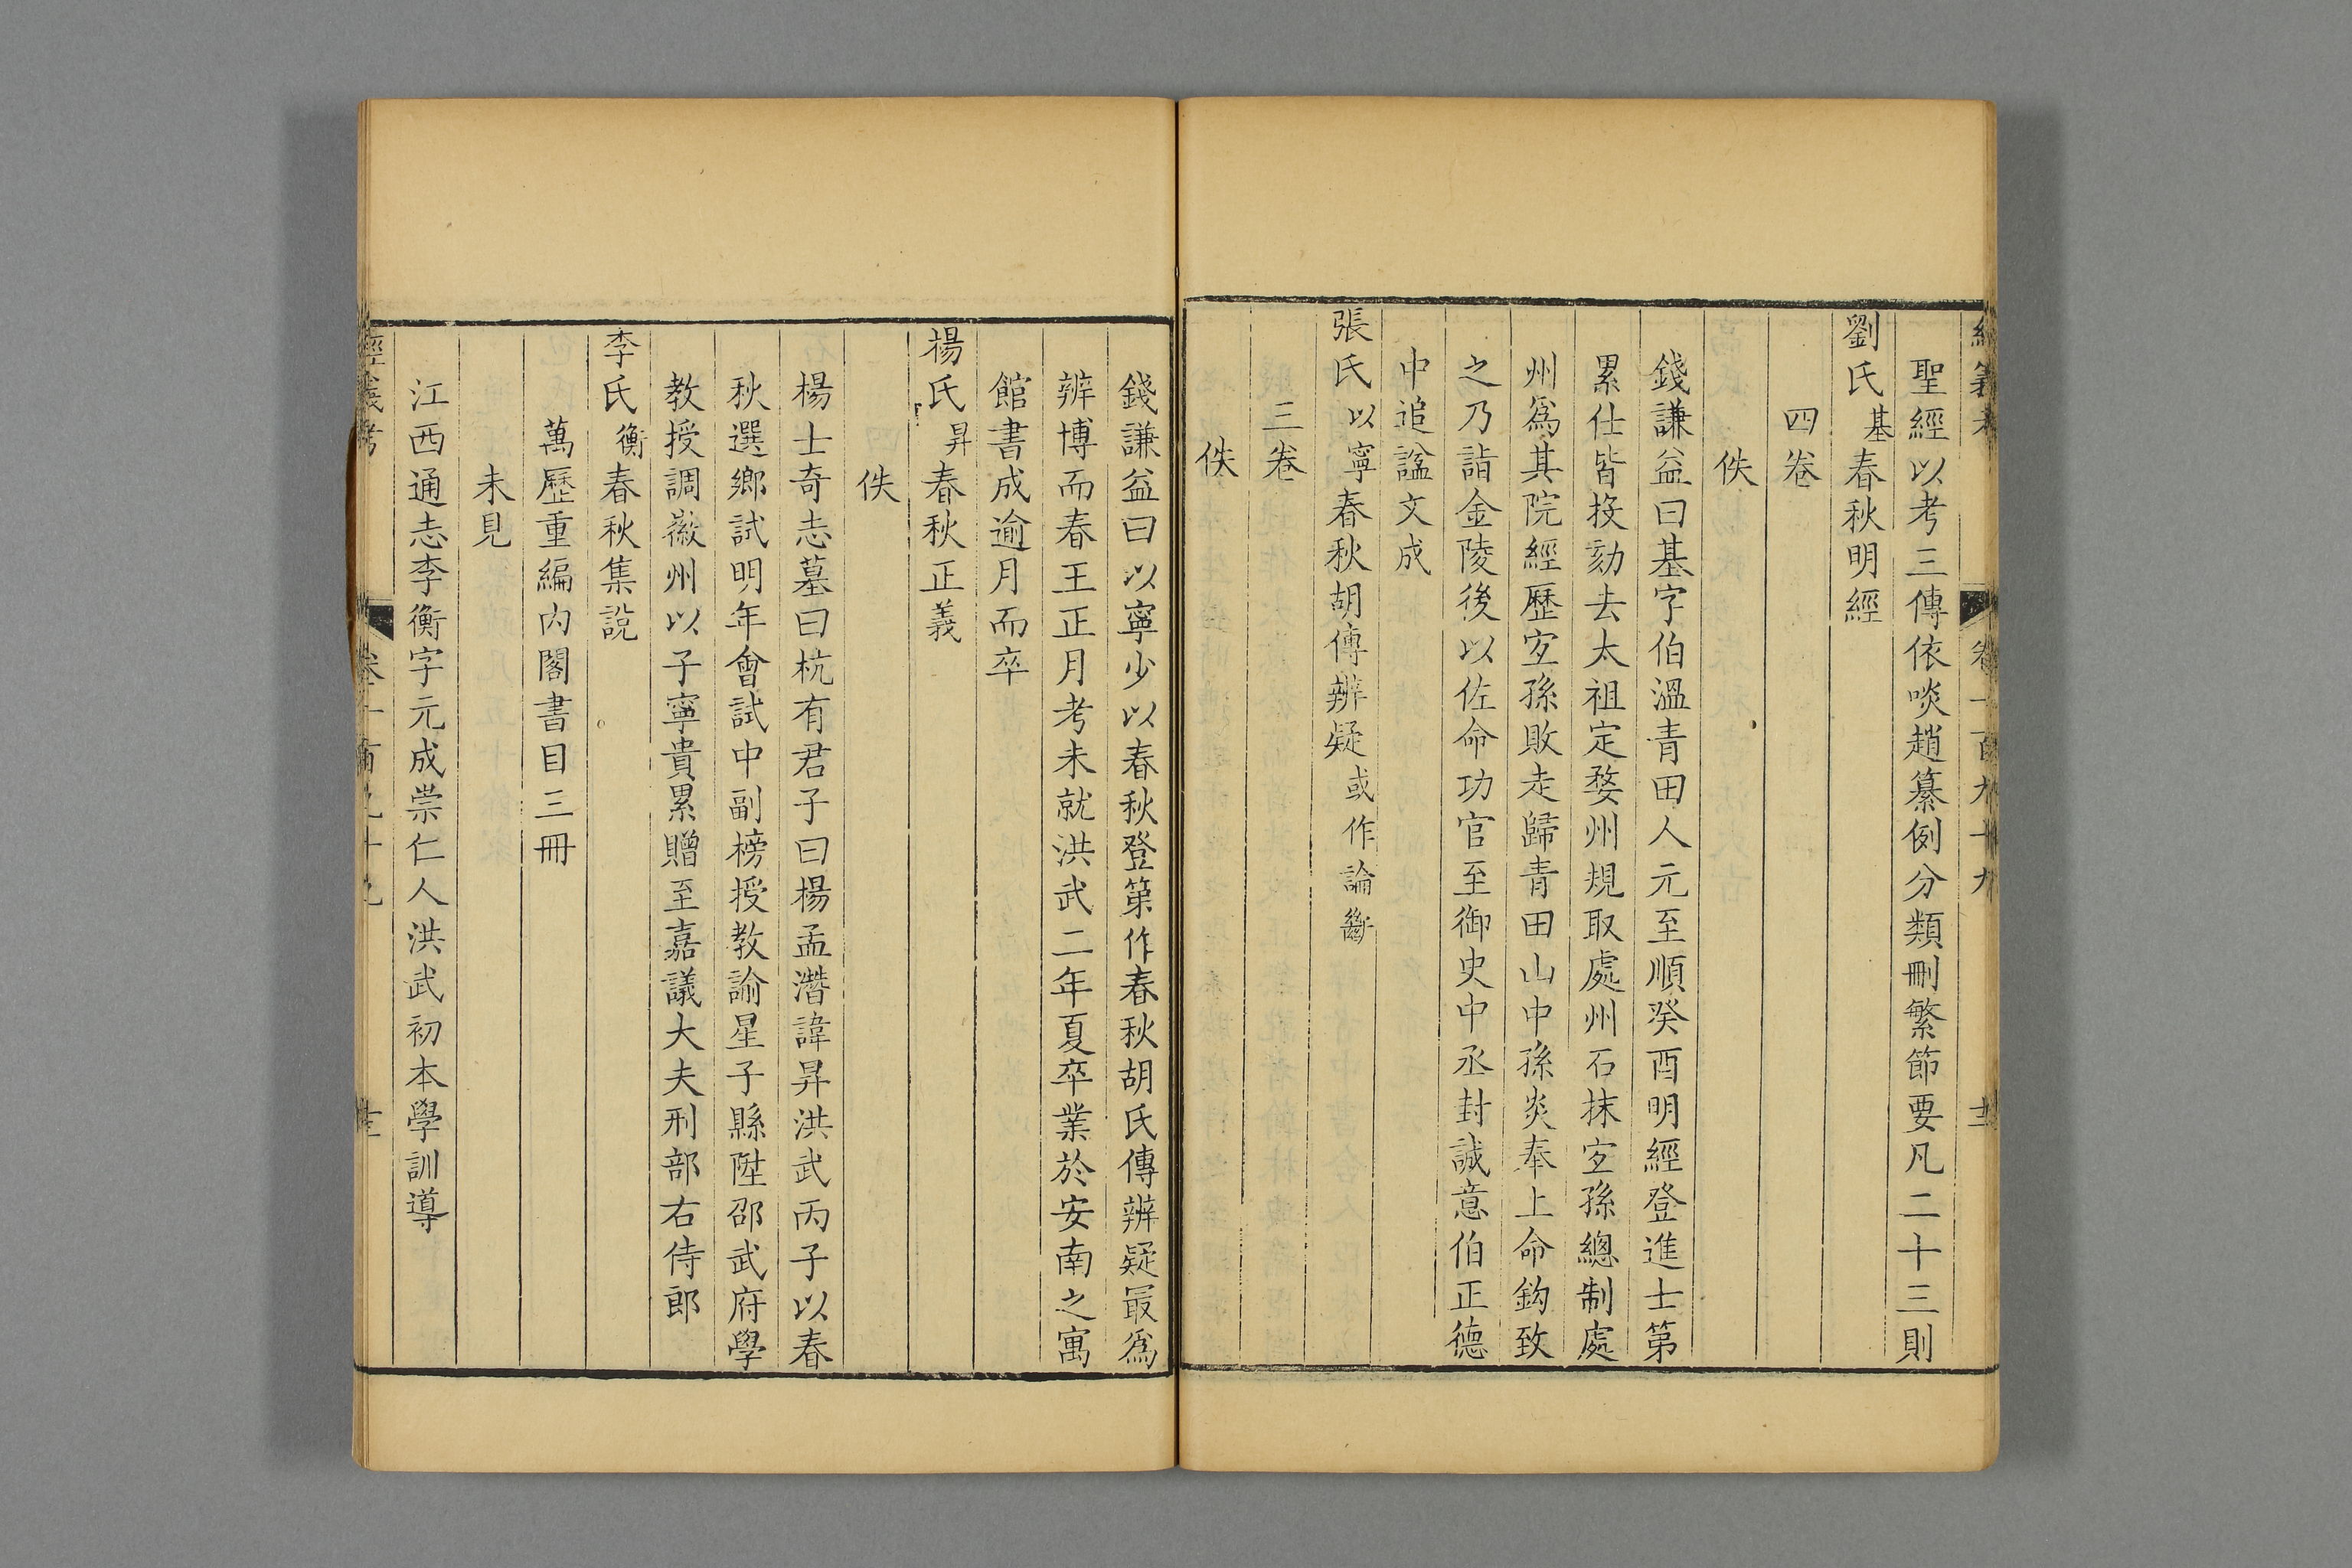 聖經以考三傳依啖趙纂例分類刪繁節要凡二十三則
劉氏基春秋明經
四卷
佚
錢謙益曰基字伯溫青田人元至順癸酉明經登進士第
累仕皆投劾去太祖定婺州規取處州石抹宜孫總制處
州爲其院經歷宜孫敗走歸青田山中孫炎奉上命鈎致
之乃詣金陵後以佐命功官至御史中丞封誠意伯正德
中追諡文成
張氏以寧春秋胡傳辨疑或作論斷
三卷
佚
錢謙益曰以寧少以春秋登第作春秋胡氏傳辨疑最爲
辨博而春王正月考未就洪武二年夏卒業於安南之寓
館書成逾月而卒
楊氏昇春秋正義
佚
楊士奇志墓曰杭有君子曰楊孟潛諱昇洪武丙子以春
秋選鄉試明年會試中副榜授教諭星子縣陞邵武府學
教授調徽州以子寧貴累贈至嘉議大夫刑部右侍郎
李氏衡春秋集說
萬歷重編內閣書目三冊
未見
江西通志李衡字元成崇仁人洪武初本學訓導